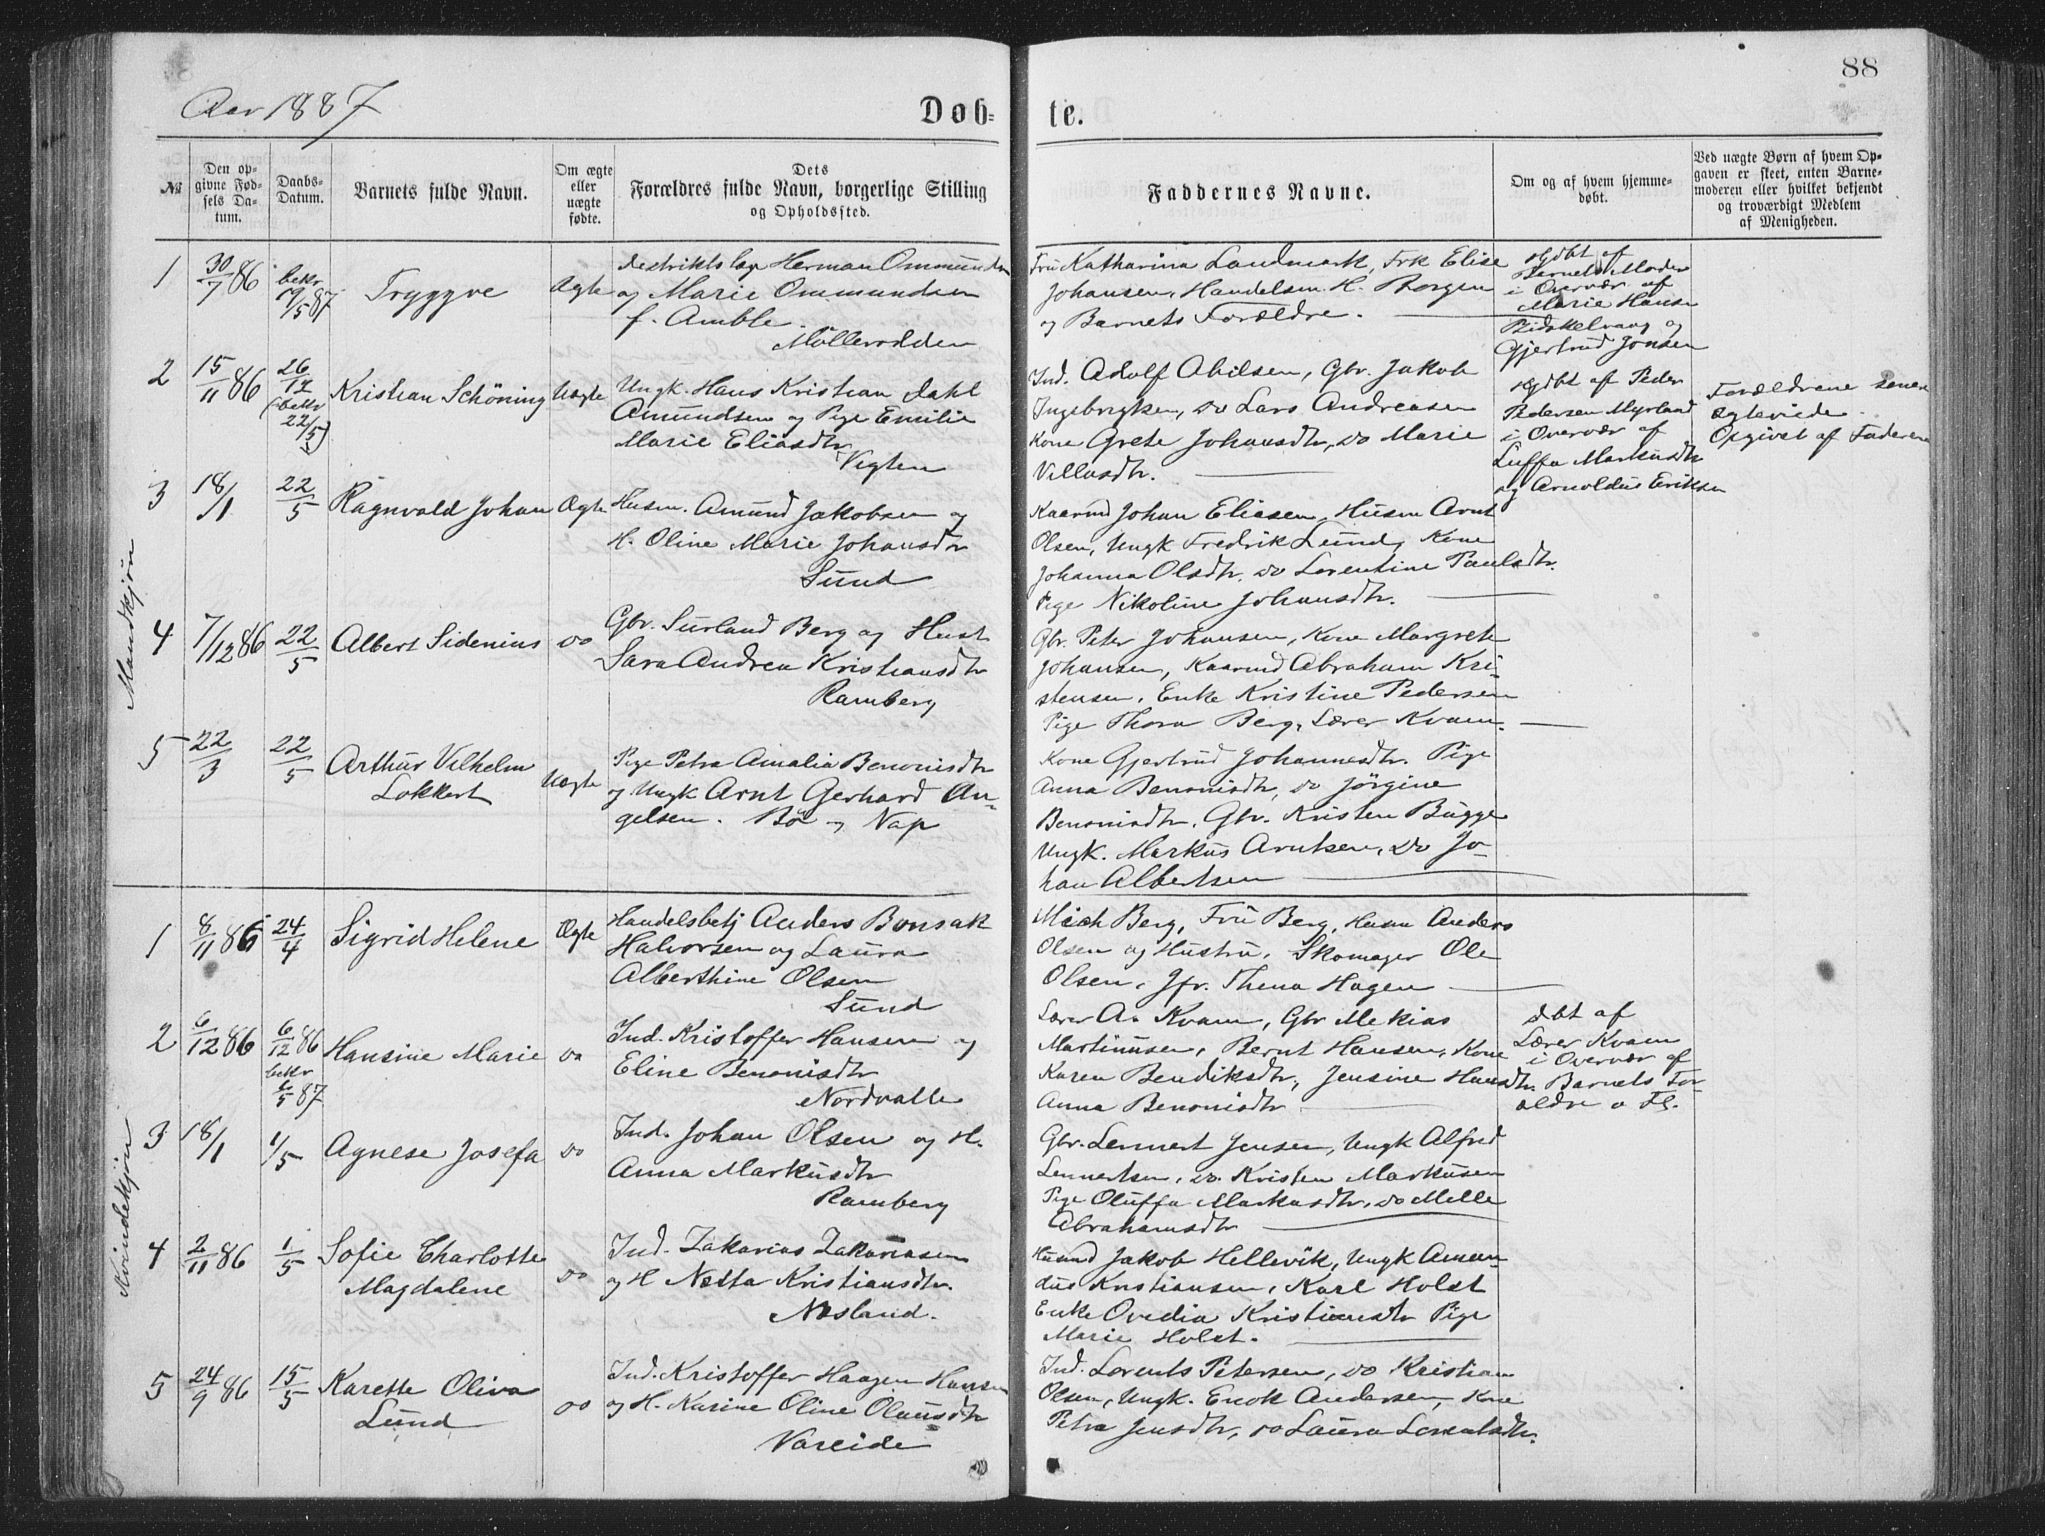 88
Aar 1887
Døb-
te.
№
Den op-
givne Fød-
sels Da-
tum.
Daabs-
Datum.
Barnets fulde Navn.
Om ægte
eller
uægte
fødte.
Dets
Forældres fulde Navn, borgerlige Stilling
og Opholdssted.
Faddernes Navne.
Om og af hvem hjemme-
døbt.
Ved uægte Børn af hvem Op-
gaven er skeet, enten Barne-
moderen eller hvilket bekjendt
og troværdigt Medlem
af Menigheden.
Mandkjøn
1
30/7 86
bekr
19/5 87
Tryggve
Ægte
Herman Ommundsen
og Marie Ommundsen
f. Amble.
Möllerodden
Fru Katharina Landmark, Frk Elise
Johansen, Handelsm. H. Borgen
og Barnets Forældre.
hjdbt af
Barnets Moder
i Overvær af
Marie Hansen
og
Gjertrud Jonsen
2
15/11 86
26/12
(bekr
22/5)
Kristian Schöning
Uægte
Ungk. Hans Kristian Dahl
Amundsen og Pige Emilie
Marie Eliasdtr
Vigten
Ind. Adolf Abilsen, Gbr. Jakob
Ingebrigtsen, do Lars Andreasen
Kone Grete Johansdtr, do Marie
Villasdtr.
hjdbt af Peder
Pedersen Myrland
i Overvær af
Luffa Markusdtr
og Arnoldus Eriksen
Forældrene senere
ægteviede
Opgivet af Faderen
3
18/1
22/5
Ragnvald Johan
Ægte
Husm. Amund Jakobsen og
H. Oline Marie Johansdtr
Sund
Kaarmd Johan Eliasen, Husm Arnt
Olsen, Ungk Fredrik Lund, Kone
Johanna Olsdtr. do Lorentine Paulsdtr.
Pige Nikoline Johansdtr.
4
7/12 86
22/5
Albert Sidenius
do
Gbr. Surland Berg og Hust
Sara Andrea Kristiansdtr
Ramberg
Gbr. Peter Johansen, Kone Margrete
Johansen, Kaarmd Abraham Kri-
stensen, Enke Kristine Pedersen
Pige Thora Berg, Lærer Kvam.
5
22/3
22/5
Arthur Vilhelm
Lokkert
Uægte
Pige Petra Amalia Benonisdtr
og Ungk Arnt Gerhard An-
gelsen. Bö og Nap
Kone Gjertrud Johannesdtr. Pige
Anna Benonisdtr, do Jörgine
Benonisdtr. Gbr. Kristen Bugge
Ungk. Markus Arntsen, do Jo-
han Albertsen
Kvindekjøn
1
8/11 86
24/4
Sigrid Helene
Ægte
Handelsbetj Anders Bonsak
Halvorsen og Laura
Alberthine Olsen
Sund
Mich Berg, Fru Berg, Husm Anders
Olsen og Hustru, Skomager Ole
Olsen, Jfr. Thena Hagen
2
6/12 86
6/12 86
bekr
1/5 87
Hansine Marie
do
Ind. Kristoffer Hansen og
Eline Benonisdtr
Nordvalle
Lærer A. Kvam, Gbr Mekias
Martinusen, Bernt Hansen, Kone
Karen Bendiksdtr, Jensine Hansdtr
Anna Benonisdtr
dbt af
Lærer Kvam
i Overvær af
Barnets For-
ældre o Fl.
3
18/1
1/5
Agnese Josefa
do
Ind. Johan Olsen og H.
Anna Markusdtr
Ramberg
Gbr. Lennert Jensen, Ungk Alfred
Lennertsen, do. Kristen Markusen
Pige Oluffa Markusdtr, do Melle
Abrahamsdtr
4
2/11 86
1/5
Sofie Charlotte
Magdalene
do
Ind. Zakarias Zakariasen
og H Netta Kristiansdtr.
Næsland.
Husmd Jakob Hellevik, Ungk Aman-
dus Kristiansen, Karl Holst
Enke Ovedia Kristiansdtr Pige
Marie Holst.
5
24/9 86
15/5
Karette Oliva
Lund
do
Ind. Kristoffer Haagen Hansen
og H. Karine Oline Olausdtr
Vareide
Ind. Lorents Petersen, do Kristian
Olsen, Ungk. Enok Andersen, Kone
Petra Jensdtr, do Laura Lorentsdtr.